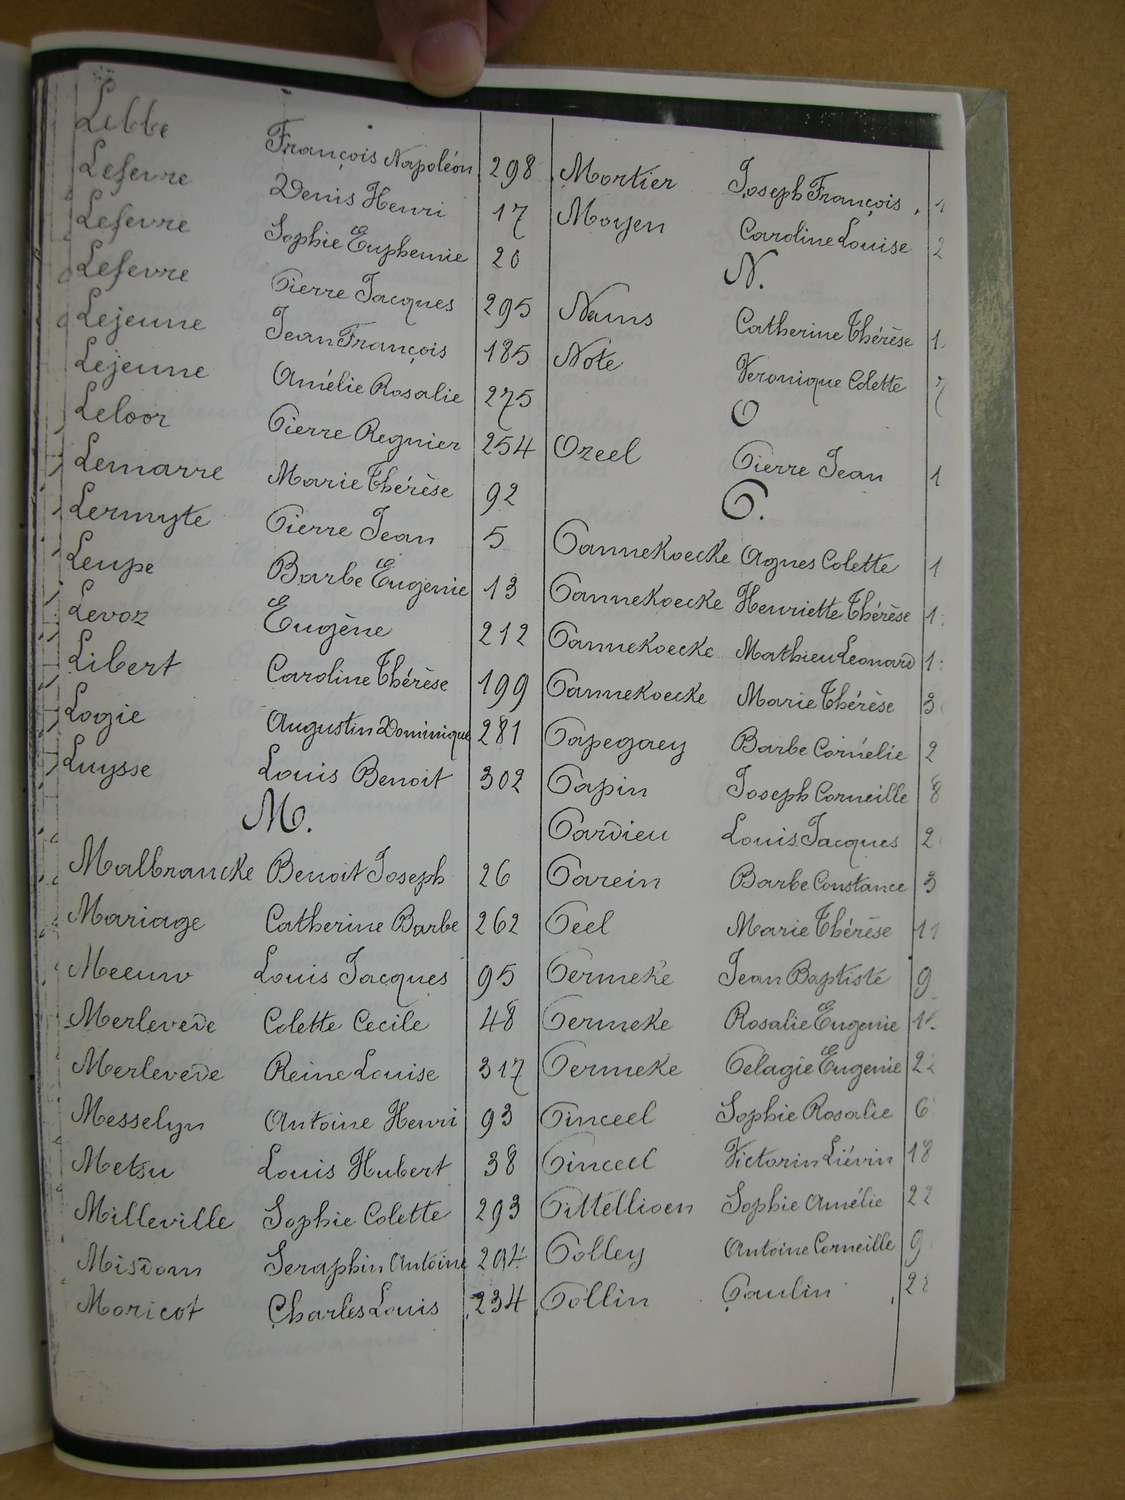 Libbe François Napoléon 298
Lefevre Denis Henri 17
Lefevre Sophie Euphemie 20
Lefevre Pierre Jacques 295
Lejeune Jean François 185
Lejeune Amélie Rosalie 275
Leloor Pierre Regnier 254
Lemarre Marie Thérèse 92
Lermyte Pierre Jean 5
Leupe Barbe Eugenie 13
Levoz Eugène 212
Libert Caroline Thérèse 199
Logie Augustin Dominique 281
Luysse Louis Benoit 302
M.
Malbrancke Benoit Joseph 26
Mariage Catherine Barbe 262
Meeuw Louis Jacques 95
Merlevede Colette Cecile 48
Merlevede Reine Louise 317
Messelyn Antoine Henri 93
Metsu Louis Hubert 38
Milleville Sophie Colette 293
Misdom Seraphin Antoine
Moricot Charles Louis 234
Mortier Joseph François
Moyen Caroline Louise
N.
Nains Catherine Thérèse
Note Veronique Colette
O
Ozeel Pierre Jean
P.
Pannekoecke Agnes Colette
Pannekoecke Henriette Thérèse
Pannekoecke Mathieu Leonard
Pannekoecke Marie Thérèse
Papegaey Barbe Cornélie
Papin Joseph Corneille
Pardieu Louis Jacques
Parein Barbe Constance
Peel Marie Thérèse
Permeke Jean Baptiste
Permeke Rosalie Eugenie
Permeke Pelagie Eugenie
Pinceel Sophie Rosalie
Pinceel Victorin Liévin
Pittellioen Sophie Amélie
Polley Antoine Corneille
Pollin Paulin